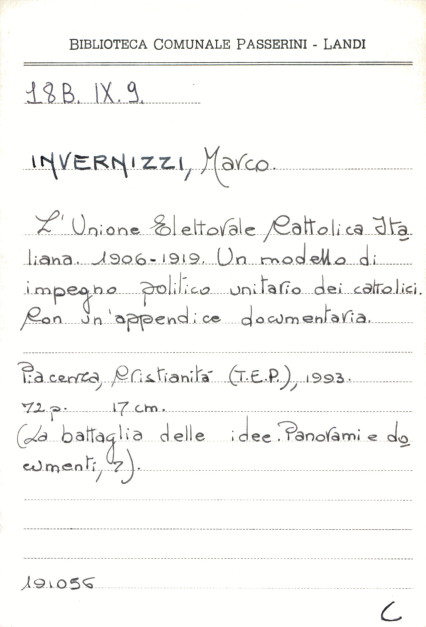 BIBLIOTECA COMUNALE PASSERINI - LANDI
18B. IX. 9.
INVERNIZZI, Marco.
L'Unione Elettorale Cattolica Ita
liana. 1906-1919. Un modello di
impegno politico unitario dei cattolici.
Con un'appendice documentaria.
Piacenza, Cristianità (T.E.P.), 1993.
72 p. 17 cm.
(La battaglia delle idee. Panorami e do
cumenti, 7).
191056
C